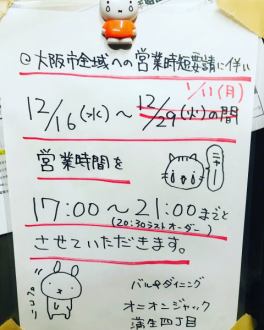 ◎大阪市全域への営業時短要請に伴い
1/11(月)
12/16(水)〜12/29(火)の間
営業時間を
ニャー!
17:00〜21:00までと
(20:30ラストオーダー)
させていただきます。
ペコリ
バル&ダイニング
オニオンジャック
蒲生四丁目